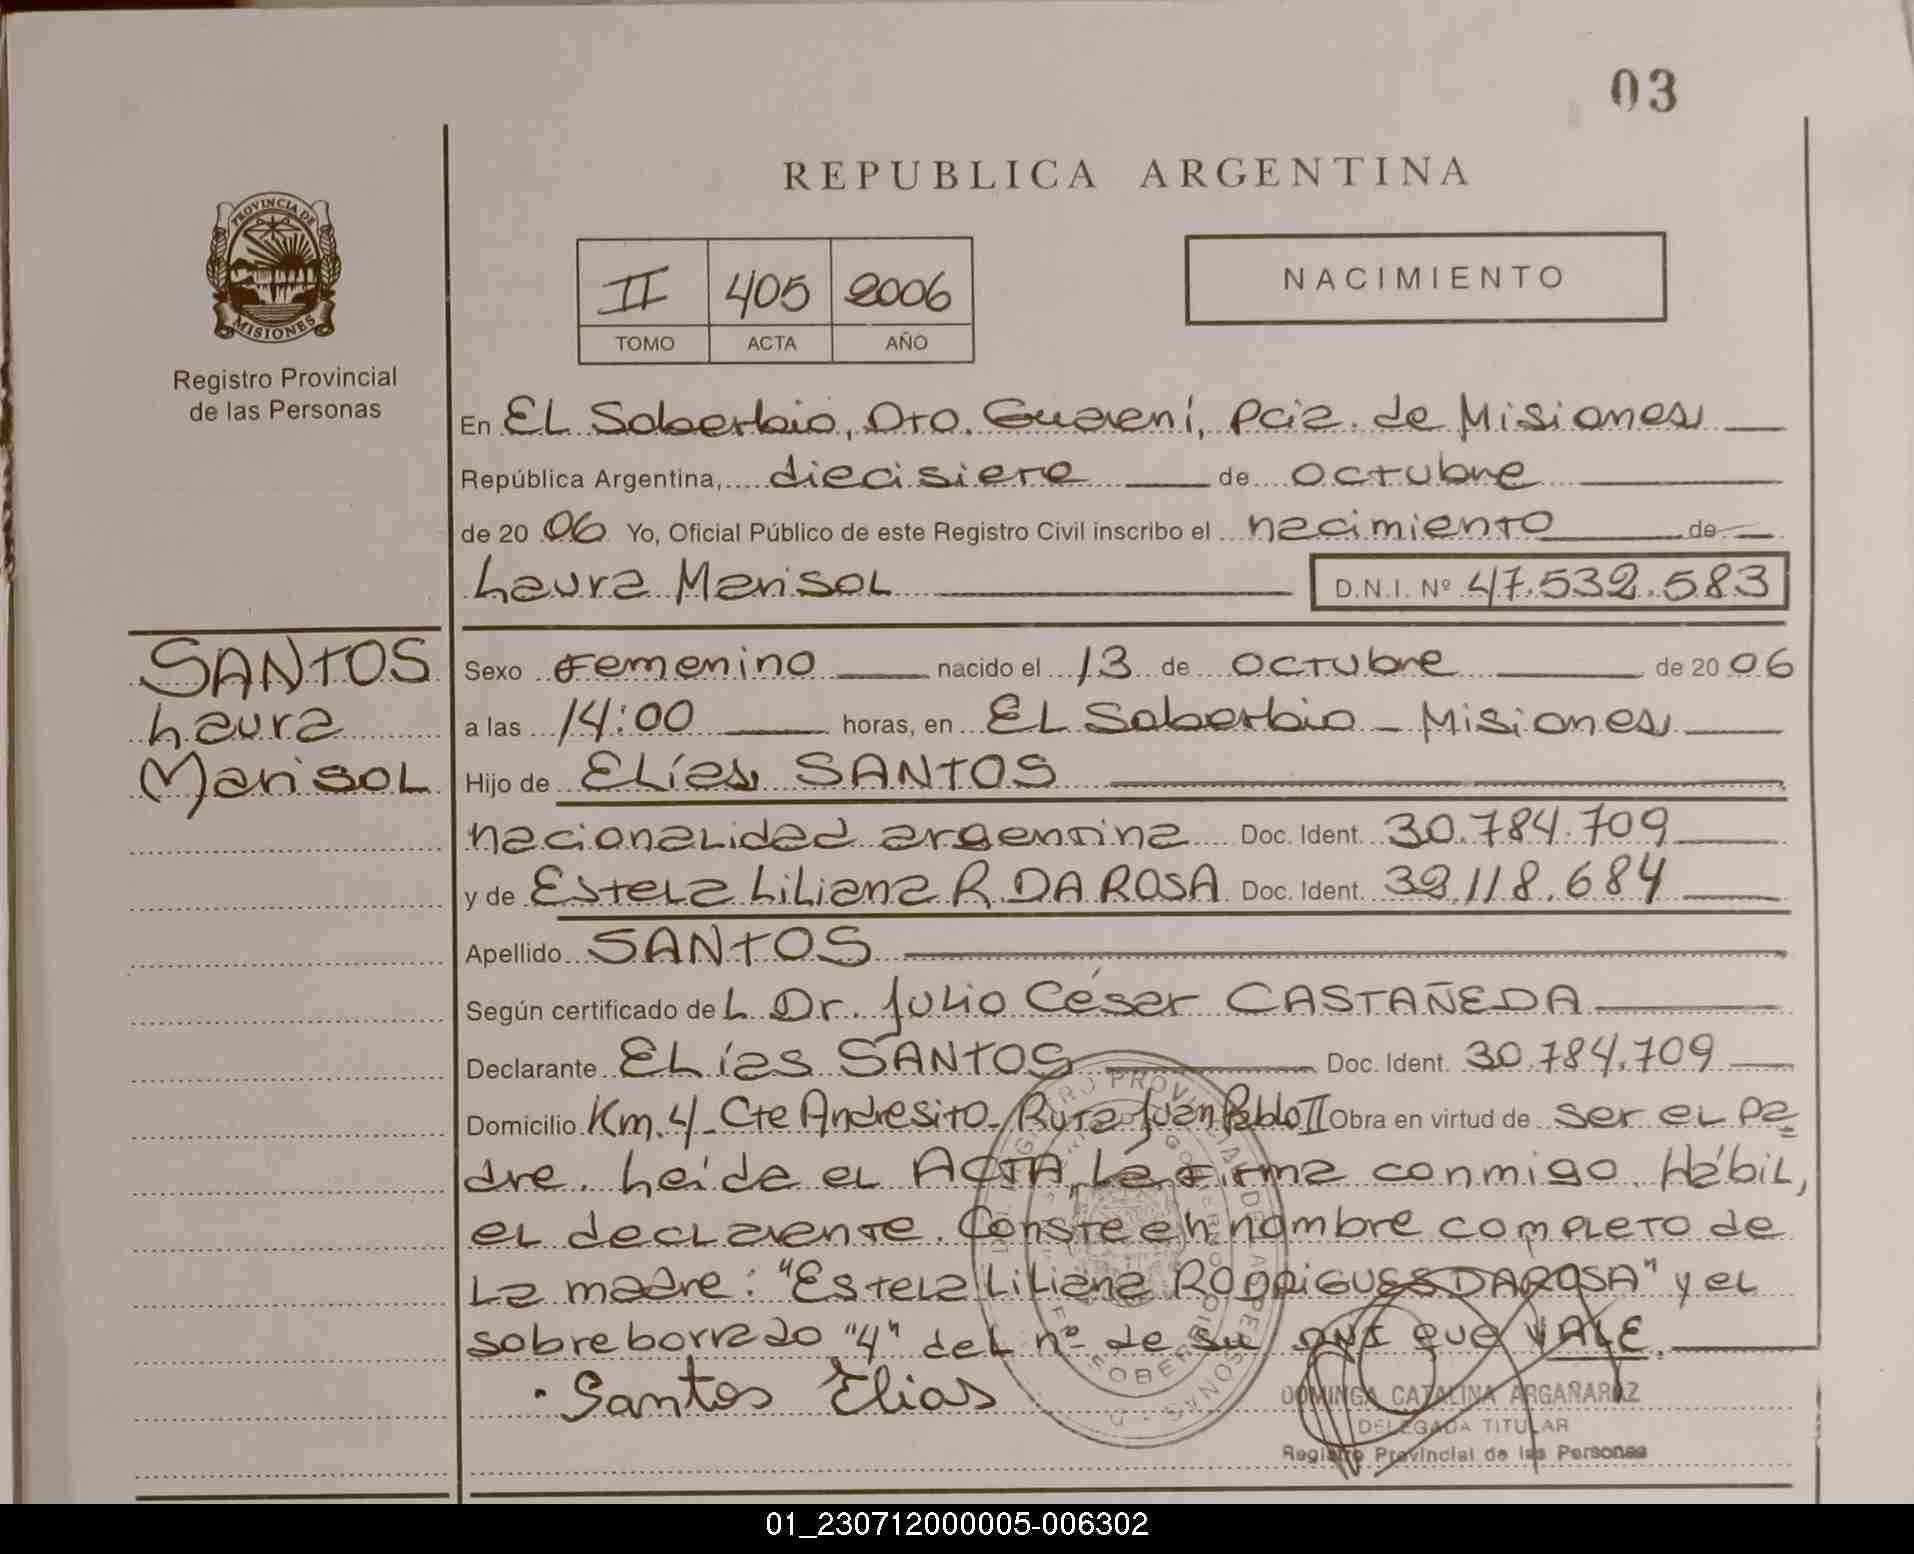 03
REPUBLICA ARGENTINA
PROVINCIA DE
MISIONES
Registro Provincial
de las Personas
II 405 2006
TOMO ACTA AÑO
NACIMIENTO
En EL Soberbio, Dto. Guaraní, Pcia. de Misiones
República Argentina, diecisiete de octubre
de 2006 Yo, Oficial Público de este Registro Civil inscribo el nacimiento de
Laura Marisol D.N.I. Nº 47.532.583
SANTOS
Laura
Marisol
Sexo Femenino nacido el 13 de octubre de 2006
a las 14:00 horas, en EL Soberbio - Misiones
Hijo de Elías SANTOS
nacionalidad argentina Doc. Ident. 30.784.709
y de Estela Liliana R. DA ROSA Doc. Ident. 118.684
Apellido SANTOS
Según certificado del Dr. Julio César CASTAÑEDA
Declarante Elías SANTOS Doc. Ident. 30.784.709
Domicilio Km. 4 - Cte Andresito - Ruta Juan Pablo II Obra en virtud de ser el pa
dre. Leída el ACTA, la firma conmigo. Hábil,
el declarante. Conste en nombre completo de
La madre: "Estela Liliana RODRIGUES DA ROSA" y el
sobreborrado "4" del nº de su DNI que VALE.
Santos Elias
DOMINGA CATALINA ARGAÑARAZ
DELEGADA TITULAR
Registro Provincial de las Personas
01_230712000005-006302